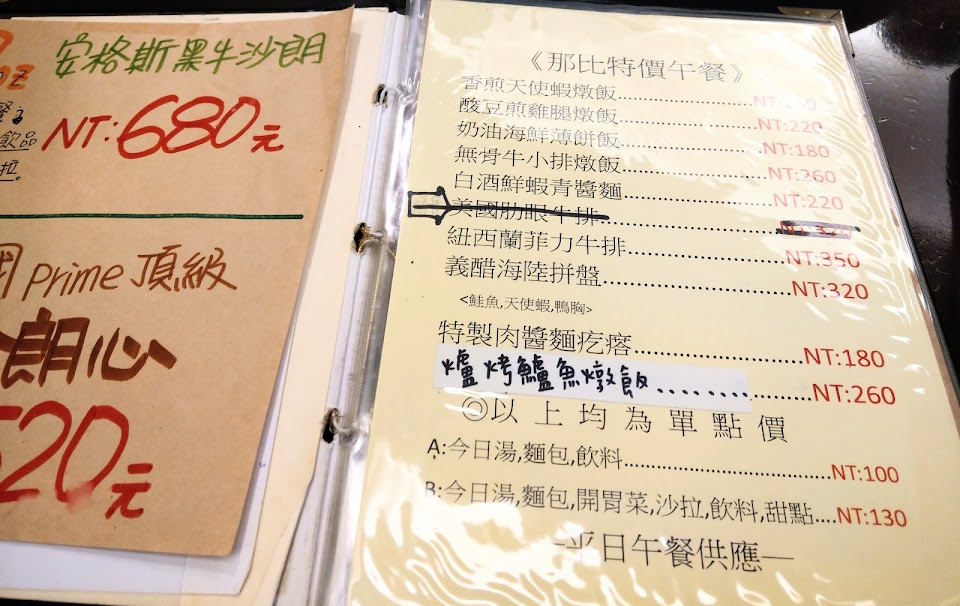 oz
安格斯黑牛沙朗
NT:680元
飲品
拉。
prime 頂級
朗心
520元
《那比特價午餐》
香煎天使蝦燉飯
酸豆煎雞腿燉飯 NT:220
奶油海鮮薄餅飯 NT:180
無骨牛小排燉飯 NT:260
白酒鮮蝦青醬麵 NT:220
美國肋眼牛排 NT:320
紐西蘭菲力牛排 NT:350
義醋海陸拼盤 NT:320
<鮭魚,天使蝦,鴨胸>
特製肉醬麵疙瘩 NT:180
爐烤鱸魚燉飯......... NT:260
◎以上均為單點價
A:今日湯,麵包,飲料 NT:100
B:今日湯,麵包,開胃菜,沙拉,飲料,甜點....NT:130
—平日午餐供應—